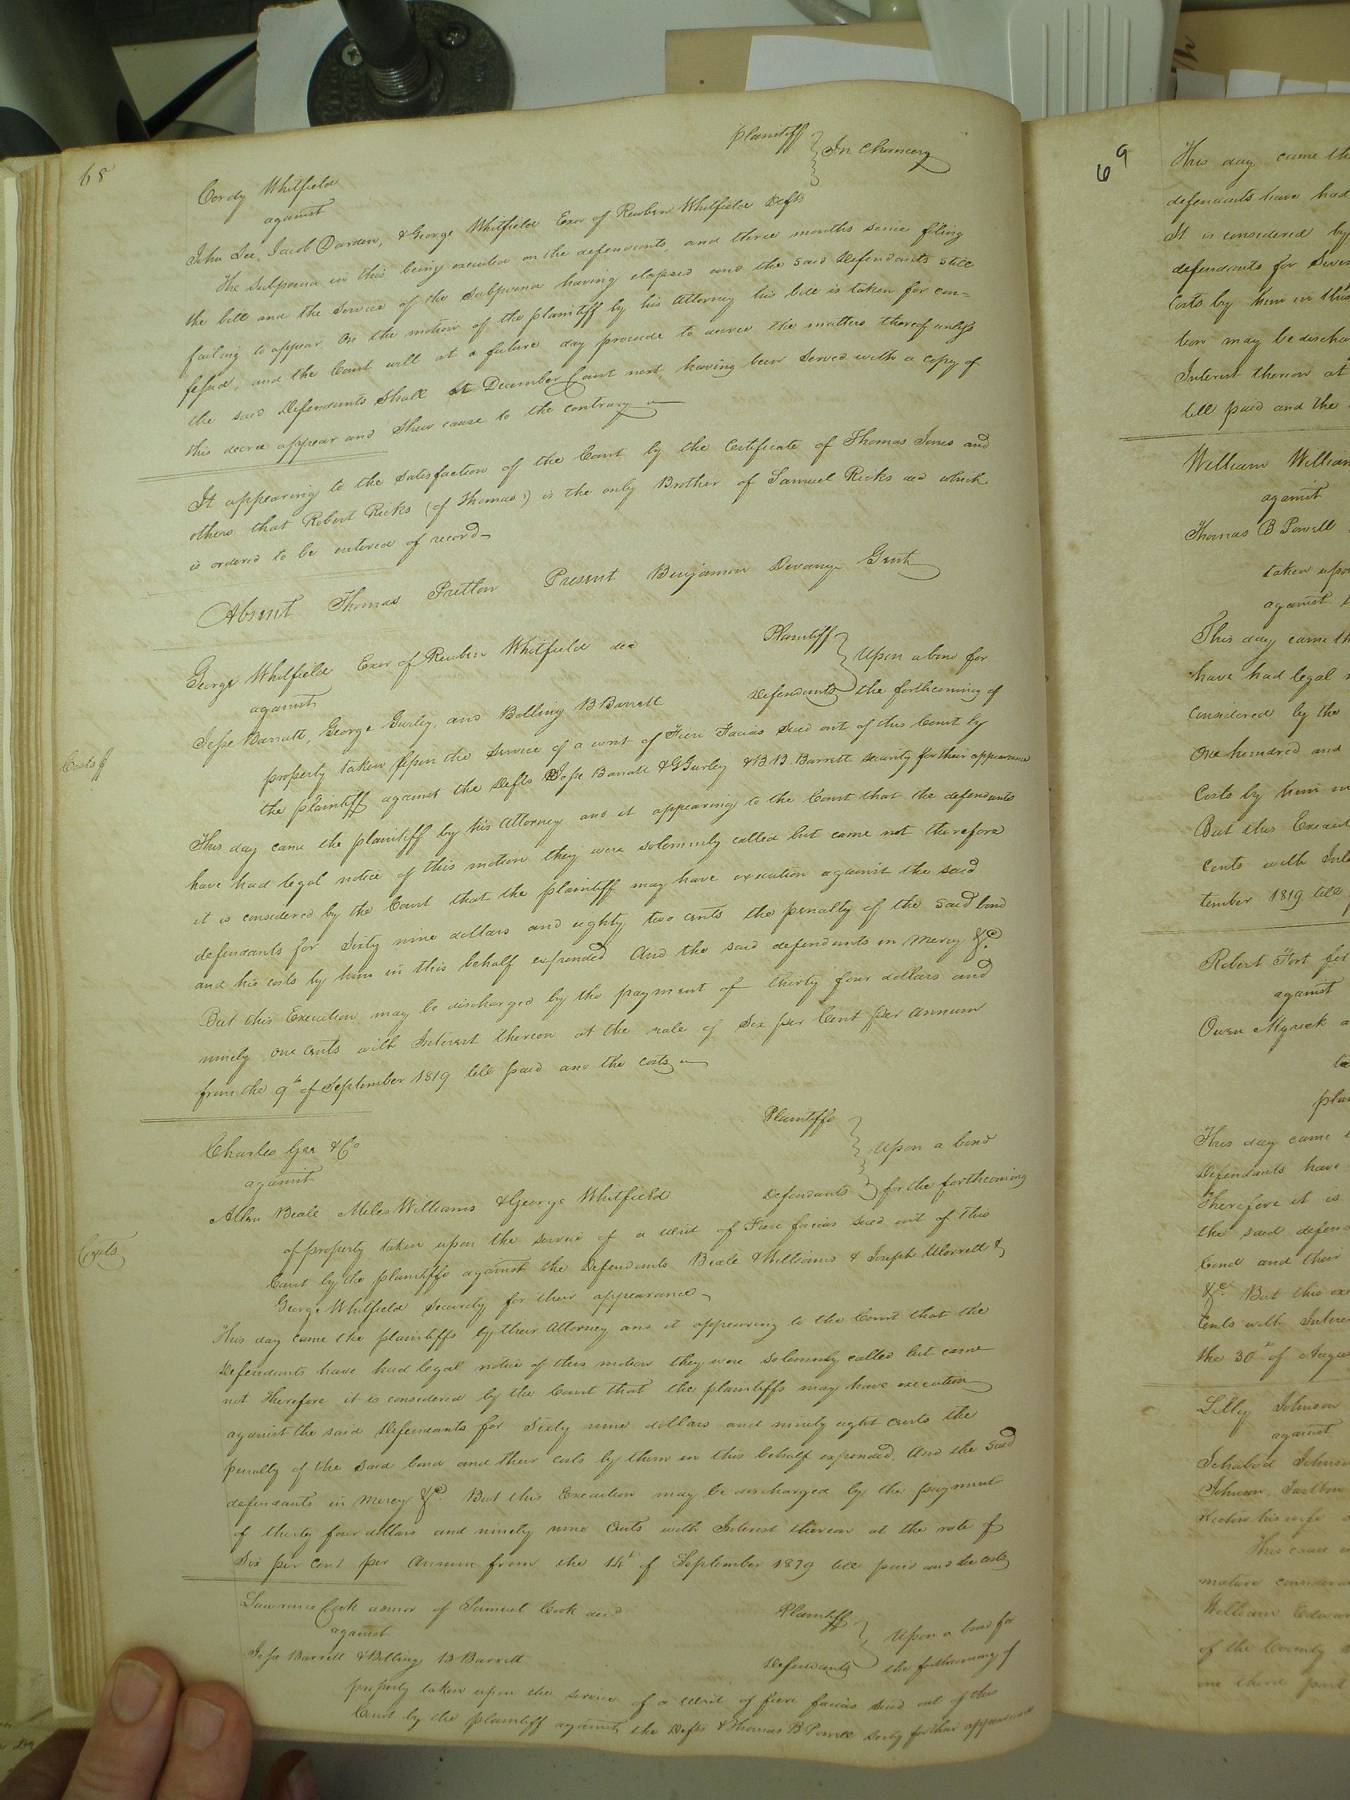 68
Cordy Whitfield plaintiff
against In Chancery
John Lee, Jacob Darden, & George Whitfield Exor of Reuben Whitfield Defts
The Subpoena in this being executed on the defendants, and three months since filing
the bill and the Service of the Subpoena having elapsed and the said Defendants still
failing to appear On the motion of the plaintiff by his Attorney his bill is taken for con=
fessed, and the Court will at a future day proceede to decree the matters thereof unless
the said Defendants Shall at December Court next, having been Served with a copy of
this decree appear and Shew cause to the contrary
It appearing to the Satisfaction of the Court by the Certificate of Thomas Jones and
others that Robert Ricks (of Thomas) is the only Brother of Samuel Ricks decd which
is ordered to be entered of record
Absent Thomas Pretlow Present Benjamin Devany Gent
George Whitfield Exor of Reuben Whitfield dec Plaintiff
against Upon a bond for
Jesse Barrett, George Gurley, and Bolling B Barrett Defendants the forthcoming of
Costs
property taken Upon the Service of a writ of Fieri Facias Sued out of this Court by
the plaintiff against the Defts Jesse Barrett & G Gurley & B B Barrett security for their appearance
This day came the plaintiff by his Attorney and it appearing to the Court that the defendants
have had legal notice of this motion they were Solemnly called but came not therefore
it is considered by the Court that the plaintiff may have execution against the said
defendants for Sixty nine dollars and eighty two cents the penalty of the said bond
and his costs by him in this behalf expended And the said defendants in Mercy &c
But this Execution may be discharged by the payment of thirty four dollars and
ninety one cents with Interest thereon at the rate of Six per Cent per Annum
from the 9th of September 1819 till paid and the costs
Charles Gee & Co Plaintiffs
against Upon a bond
Allen Beale Miles Williams & George Whitfield Defendants for the forthcoming
Costs
of property taken upon the service of a writ of Fieri facias sued out of this
Court by the plaintiffs against the Defendants Beale & Williams & Joseph Worrell &
George Whitfield Security for their appearance
This day came the plaintiffs by their Attorney and it appearing to the Court that the
Defendants have had legal notice of this motion they were Solemnly called but came
not Therefore it is considered by the Court that the plaintiffs may have execution
against the said Defendants for Sixty nine dollars and ninety eight cents the
penalty of the Said bond and their costs by them in this behalf expended. And the said
defendants in Mercy &c But this Execution may be discharged by the payment
of thirty four dollars and ninety nine Cents with Interest thereon at the rate of
Six per cent per Annum from the 14th of September 1819 till paid and the costs
Lawrence Cook admor of Samuel Cook decd Plaintiff
against Upon a bond for
Jesse Barrett & Bolling B Barrett Defendants the forthcoming of
property taken upon the service of a Writ of fieri facias Sued out of this
Court by the plaintiff against the Defts & Thomas B Powell Secty for their appearance
69
This day came th
defendants have had
It is considered by
defendants for Seven
Costs by him in this
tion may be discha
Interest thereon at
till paid and the
William William
against
Thomas B Powell
taken upon
against
This day came th
have had legal n
Considered by the
One hundred and
Costs by him in
But this Execut
Cents with Inte
tember 1819 till
Robert Fort for
against
Owen Myrick a
ta
plai
This day came
Defendants have
Therefore it is
the said defen
bond and their
&c But this exe
Cents with Intere
the 30th of Augus
Lilly Johnson
against
Ichabod Johnso
Johnson,
his wife
This cause
mature considera
William Edwar
of the County
one third part